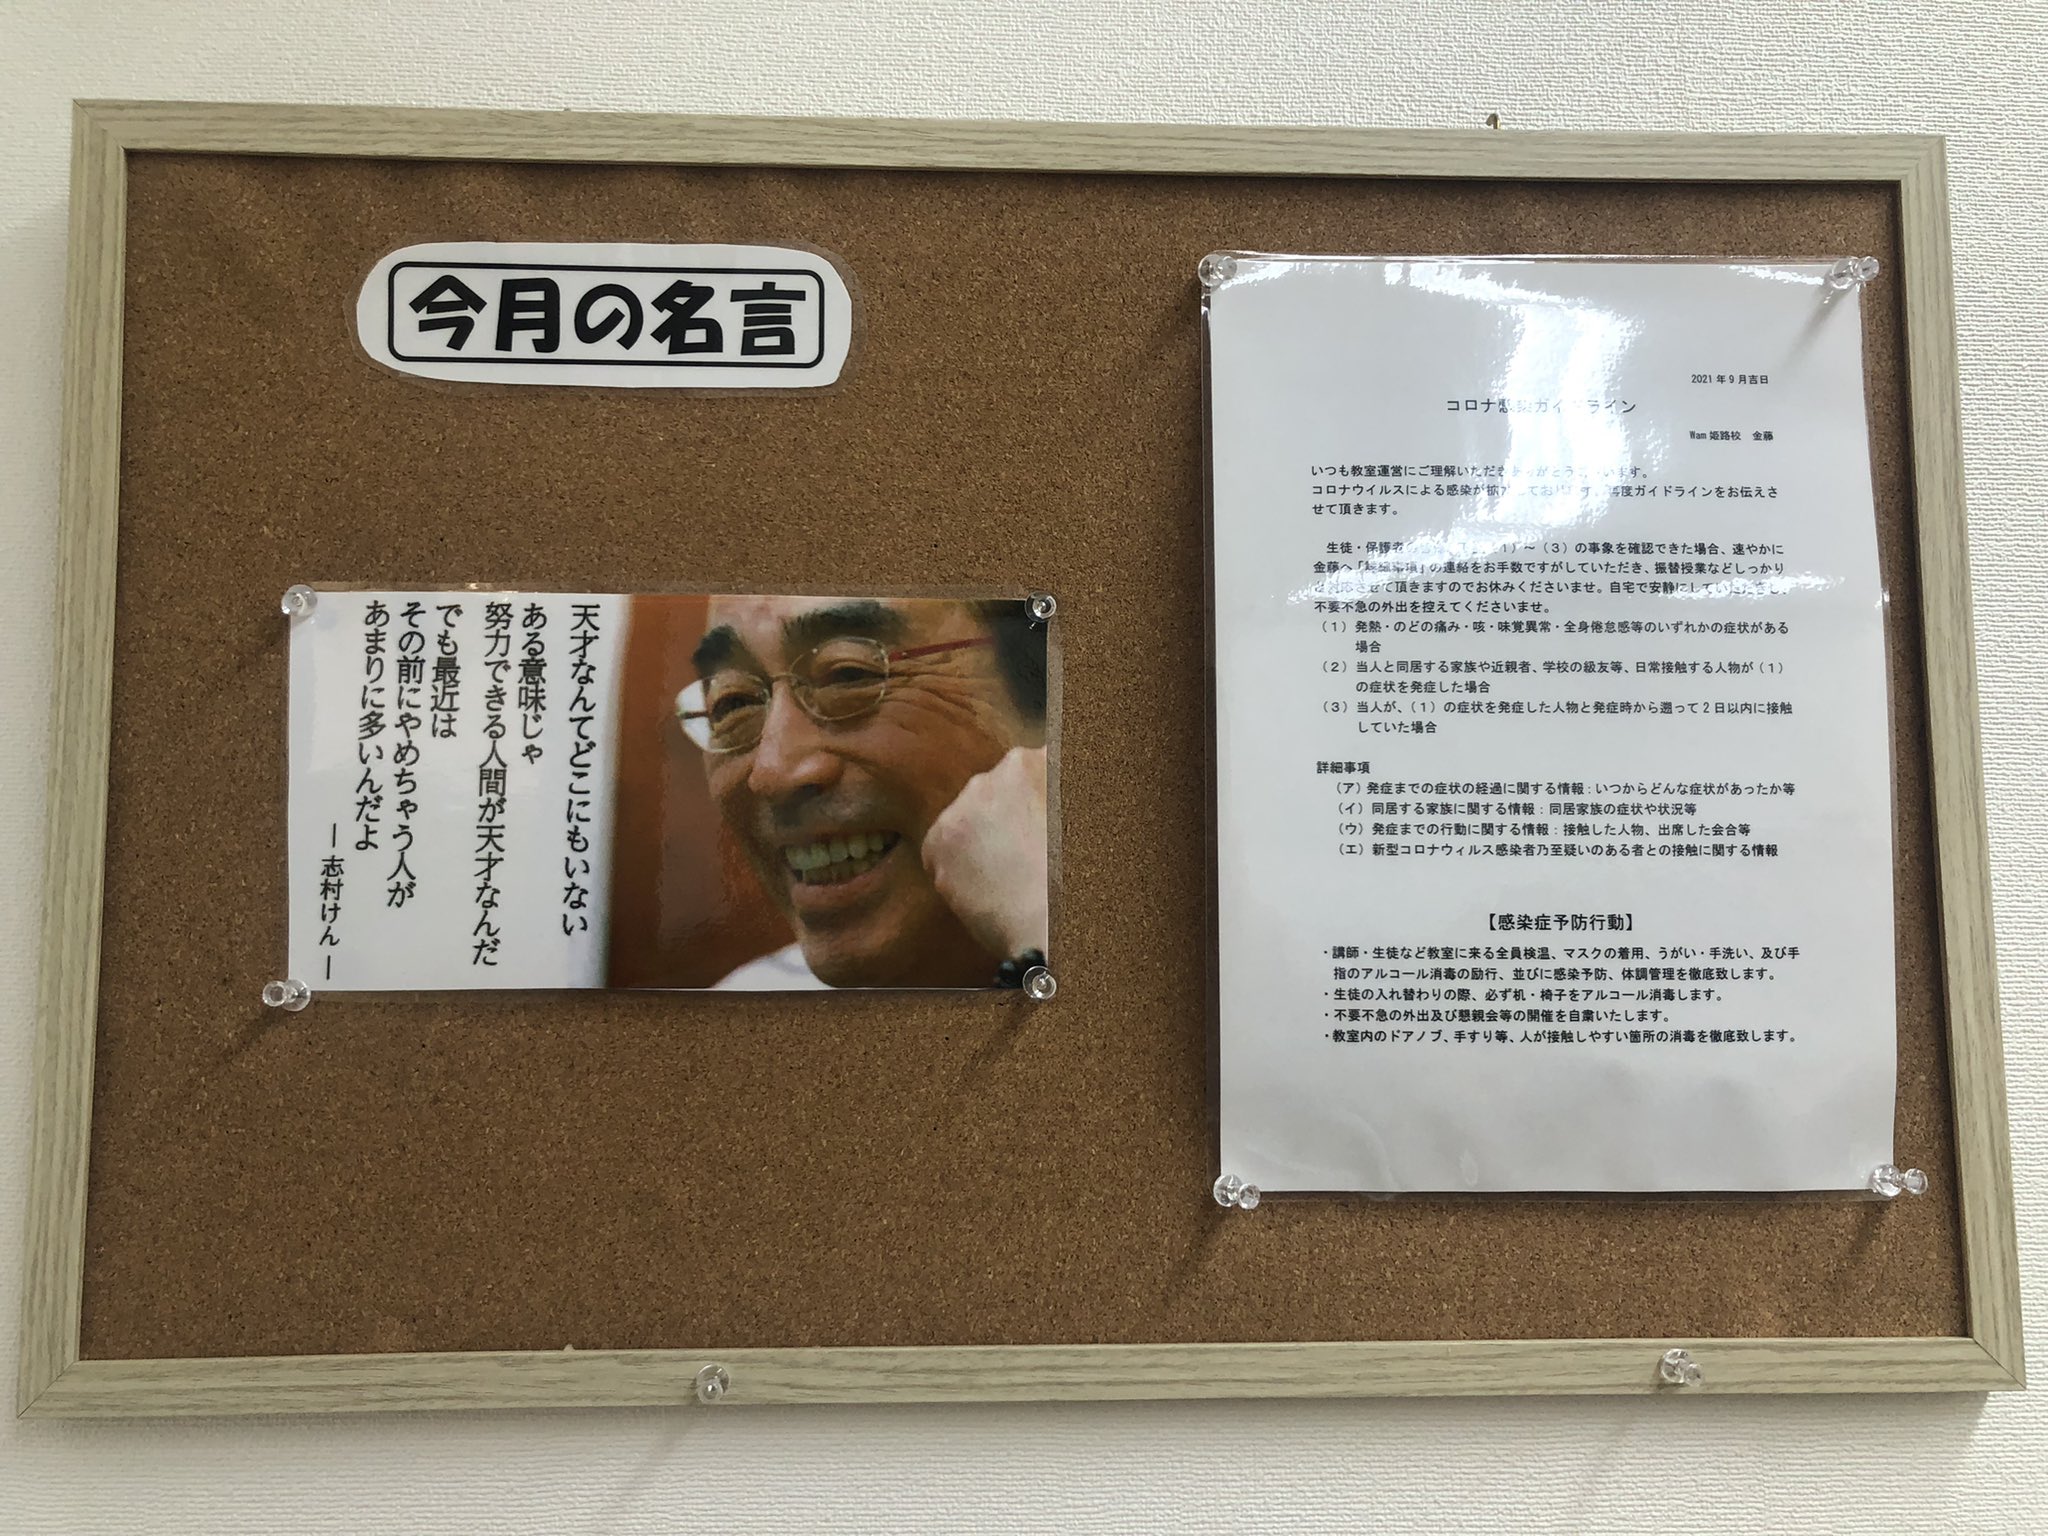 今月の名言
天才なんてどこにもいない
ある意味じゃ
努力できる人間が天才なんだ
でも最近は
その前にやめちゃう人が
あまりに多いんだよ
―志村けん―
2021年9月吉日
コロナ感染ガイドライン
Wam姫路校　金藤
いつも教室運営にご理解いただきありがとうございます。
コロナウイルスによる感染が拡大しております。再度ガイドラインをお伝えさ
せて頂きます。
生徒・保護者の（1）～（3）の事象を確認できた場合、速やかに
金藤へ「詳細事項」の連絡をお手数ですがしていただき、振替授業などしっかり
対応させて頂きますのでお休みくださいませ。自宅で安静にしていただき、
不要不急の外出を控えてくださいませ。
（1）発熱・のどの痛み・咳・味覚異常・全身倦怠感等のいずれかの症状がある
場合
（2）当人と同居する家族や近親者、学校の級友等、日常接触する人物が（1）
の症状を発症した場合
（3）当人が、（1）の症状を発症した人物と発症時から遡って2日以内に接触
していた場合
詳細事項
（ア）発症までの症状の経過に関する情報：いつからどんな症状があったか等
（イ）同居する家族に関する情報：同居家族の症状や状況等
（ウ）発症までの行動に関する情報：接触した人物、出席した会合等
（エ）新型コロナウィルス感染者乃至疑いのある者との接触に関する情報
【感染症予防行動】
・講師・生徒など教室に来る全員検温、マスクの着用、うがい・手洗い、及び手
指のアルコール消毒の励行、並びに感染予防、体調管理を徹底致します。
・生徒の入れ替わりの際、必ず机・椅子をアルコール消毒します。
・不要不急の外出及び懇親会等の開催を自粛いたします。
・教室内のドアノブ、手すり等、人が接触しやすい箇所の消毒を徹底致します。